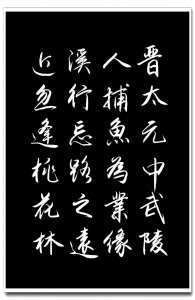 晋太元中武陵
人捕魚為業缘
溪行忘路之遠
近忽逢桃花林